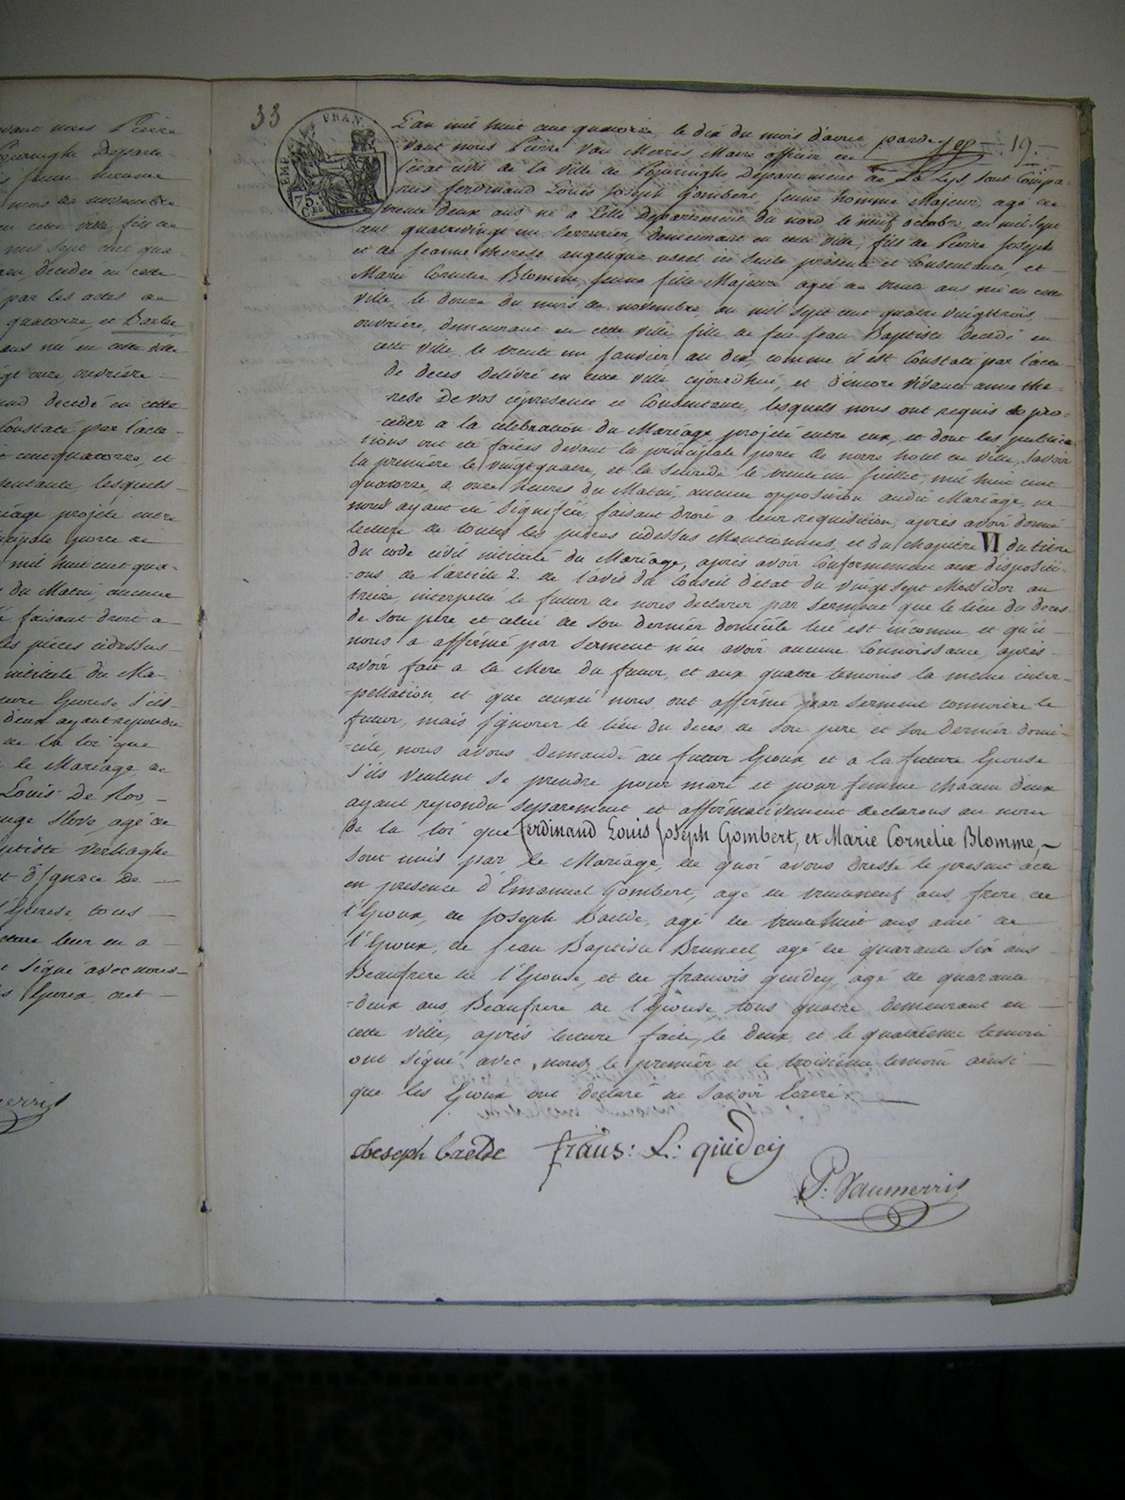 vant nous Pierre
mois de novembre
en cette ville, fils de
mil sept cent qua
par les actes de
quatorze, et Barbe
ans né en cette ville
ouvrière
decedé en cette
Constaté par l'acte
quatorze, et
lesquels
riage projeté entre
cipale porte de
mil huit cent qua-
du Matin, aucune
faisant droit a
les pièces cidessus
intitulé du Ma-
ture Epouse s'ils
deux ayant repondu
de la loi que
le Mariage de
Louis De Roo
agé de
ptiste Verhaghe
et d'Ignace De
l'Epouse, tous
cture leur en a
signé avec nous
Epoux ont
33
EMP FRAN
75 C
19.
L'an mil huit cent quatorze, le dix du mois d'aout pardevant
vant nous Pierre Van Merris Maire officier de
l'état civil de la Ville de Departement de La Lys, sont Compa-
rus ferdinand Louis Joseph Gombert, jeune homme Majeur, agé de
trente deux ans né a Lille Departement du nord le neuf octobre, an mil sept
cent quatrevingt un Serrurier, demeurant en cette ville, fils de Pierre Joseph
et de Jeanne therese angelique ici presente et Consentante, et
Marie Cornelie Blomme, jeune fille Majeure agée de trente ans née en cette
ville, le douze du mois de novembre, an mil sept cent quatre vingt trois,
ouvrière, demeurant en cette ville, fille de feu Jean Baptiste decedé en
cette ville, le trente un Janvier an dix, comme il est Constaté par l'acte
de deces delivré en cette ville cejourd'hui, et d'encore vivante anne the-
rese De vos cipresente et Consentante, lesquels nous ont requis de pro-
ceder a la celebration du Mariage projeté entre eux, et dont les publica
tions ont été faites devant la principale porte de notre hotel de ville, Savoir
la première le vingtquatre, et la seconde le trente un Juillet, mil huit cent
quatorze, a onze heures du Matin, aucune opposition audit Mariage, ne
nous ayant été signifiée, faisant droit a leur requisition, après avoir donné
lecture de toutes les pièces cidessus Mentionnées, et du chapitre VI du titre
du code civil intitulé du Mariage, après avoir Conformement aux dispositi-
-ons de l'article 2. de l'avis du Conseil d'état du vingt sept Messidor an
treize, interpellé le futur de nous declarer par serment que le lieu du deces
de son pere et celui de son dernier domicile lui est inconnu et qu'il
nous a affirmé par serment n'en avoir aucune Connoissance, après
avoir fait a la Mere du futur, et aux quatre temoins la meme inter-
-pellation et que ceuxci nous ont affirmé par serment connoitre le
futur, mais ignorer le lieu du deces de son pere et son dernier domi-
-cile, nous avons demandé au futur Epoux et a la future Epouse
s'ils veulent se prendre pour mari et pour femme chacun deux
ayant repondu separement et affirmativement declarons au nom
de la loi que ferdinand Louis Joseph Gombert, et Marie Cornelie Blomme,
sont unis par le Mariage, de quoi avons dressé le present acte
en presence d'Emanuel Gombert, agé de trenteneuf ans, frere de
l'Epoux, de Joseph Baelde, agé de trentehuit ans ami de
l'Epoux, de Jean Baptiste Bruneel, agé de quarante six ans
Beaufrere de l'Epouse, et de francois quidey, agé de quarante
-deux ans Beaufrere de l'Epouse, tous quatre demeurant en
cette ville, après lecture faite, le deux et le quatrieme temoin
ont signé avec nous, le premier et le troisième temoin ainsi
que les Epoux ont declaré ne savoir Ecrire.
Joseph Baelde frans: L: quidey
P: Vanmerris